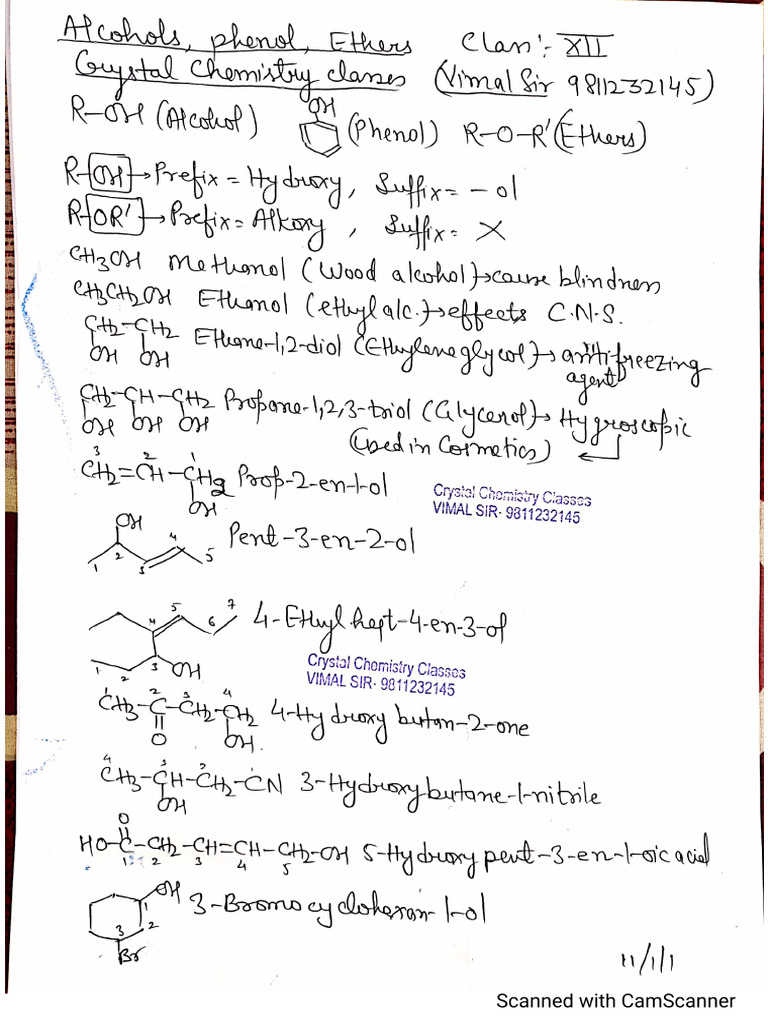 Alcohols, phenol, Ethers Class:- XII
Crystal Chemistry classes (Vimal Sir 9811232145)
R-OH (Alcohol) OH (Phenol) R-O-R' (Ethers)
R-OH → Prefix = Hydroxy, Suffix = -ol
R-OR' → Prefix = Alkoxy, Suffix = X
CH3OH Methanol (Wood alcohol) → cause blindness
CH3CH2OH Ethanol (ethyl alc.) → effects C.N.S.
CH2-CH2 Ethane-1,2-diol (Ethylene glycol) → anti-freezing
OH OH agent
CH2-CH-CH2 Propane-1,2,3-triol (Glycerol) → Hygroscopic
OH OH OH (used in Cosmetics)
3 2 1
CH2=CH-CH2 Prop-2-en-1-ol
OH
Crystal Chemistry Classes
VIMAL SIR- 9811232145
OH
1 2 3 4 5 Pent-3-en-2-ol
1 2 3 4 5 6 7 4-Ethyl hept-4-en-3-ol
OH
Crystal Chemistry Classes
VIMAL SIR- 9811232145
1 2 3 4
CH3-C-CH2-CH2 4-Hydroxy butan-2-one
O OH
4 3 2
CH3-CH-CH2-CN 3-Hydroxybutane-1-nitrile
OH
O
HO-C-CH2-CH=CH-CH2-OH 5-Hydroxy pent-3-en-1-oic acid
1 2 3 4 5
OH 3-Bromocyclohexan-1-ol
1 2 3
Br
11/1/1
Scanned with CamScanner